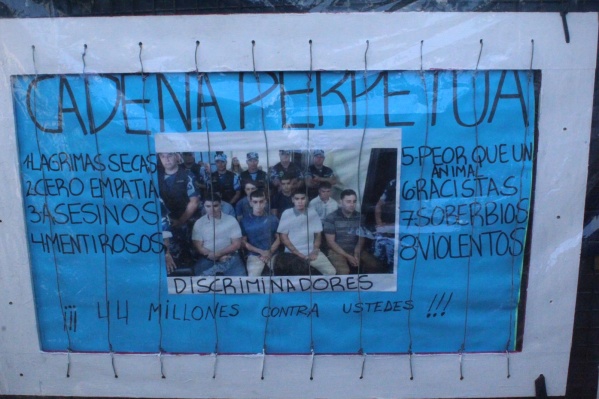 CADENA PERPETUA
1LAGRIMAS SECAS
2CERO EMPATIA
3ASESINOS
4MENTIROSOS
5-PEOR QUE UN
ANIMAL
6RACISTAS
7SOBERBIOS
8VIOLENTOS
DISCRIMINADORES
¡¡¡ 44 MILLONES CONTRA USTEDES !!!